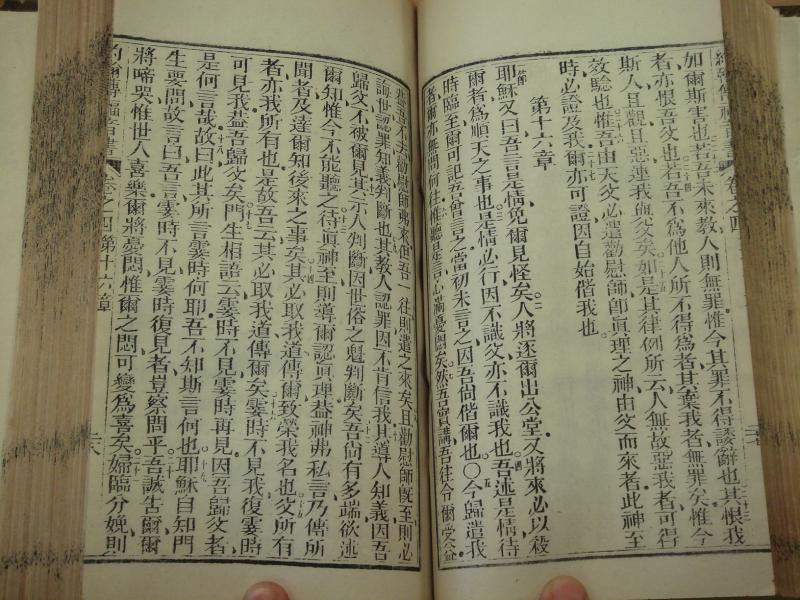 約翰傳福音書 卷之四
如爾斯害也若吾未來教人則無罪惟今其罪不得諉辭也其恨我
者亦恨吾父也若吾不爲他人所不得爲者其棄我者無罪矣惟今
斯人且覩且惡連我與父矣如是其律例所云人無故惡我者可得
效驗也惟吾由天父必遣勸慰師卽眞理之神由父而來者此神至
時必證及我爾亦可證因自始偕我也
第十六章
耶穌又曰吾言是情免爾見怪矣人將逐爾出公堂又將來必以殺
爾者爲順天之事也是情必行因不識父亦不識我也吾述是情待
時臨至爾可記吾曾言之當初未言之因吾尚偕爾也〇今歸遣我
者爾亦無問何往惟聽是言心滿憂悶矣然吾實講吾往令爾受益
吾不去勸慰師弗來但吾一往則遣之來矣且勸慰師旣至則必
誨世認罪知義判斷也其敎人認罪因不肯信我其導人知義因吾
歸父不被爾見其示人判斷因世俗之魁判斷矣吾尚有多端欲述
爾知惟今不能聽之待眞神至則導爾認眞理葢神弗私言乃傳所
聞者及達爾知後來之事矣其必取我道傳爾致榮我名也父所有
者亦我所有也是故吾云其必取我道傳爾矣霎時不見我復霎時
可見我葢吾歸父矣門生相語云霎時不見霎時再見因吾歸父者
是何言哉故曰此其所言霎時何耶吾不知斯言何也耶穌自知門
生要問故言曰吾言霎時不見霎時復見者豈察問乎吾誠告爾爾
將啼哭惟世人喜樂爾將憂悶惟爾之悶可變爲喜矣婦臨分娩則
約翰傳福音書 卷之四第十六章